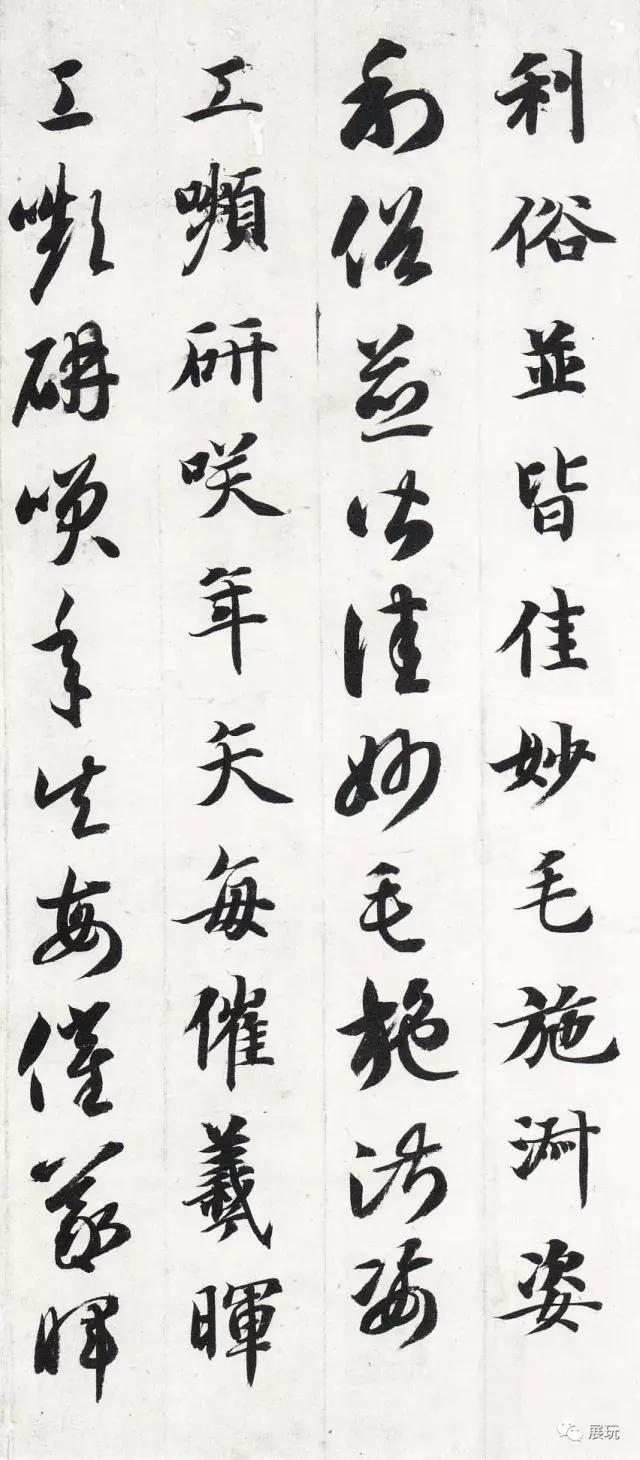 利俗並皆佳妙毛施淑姿
利俗並皆佳妙毛施淑姿
工嚬研咲年矢每催羲暉
工嚬研咲年矢每催羲暉
展玩